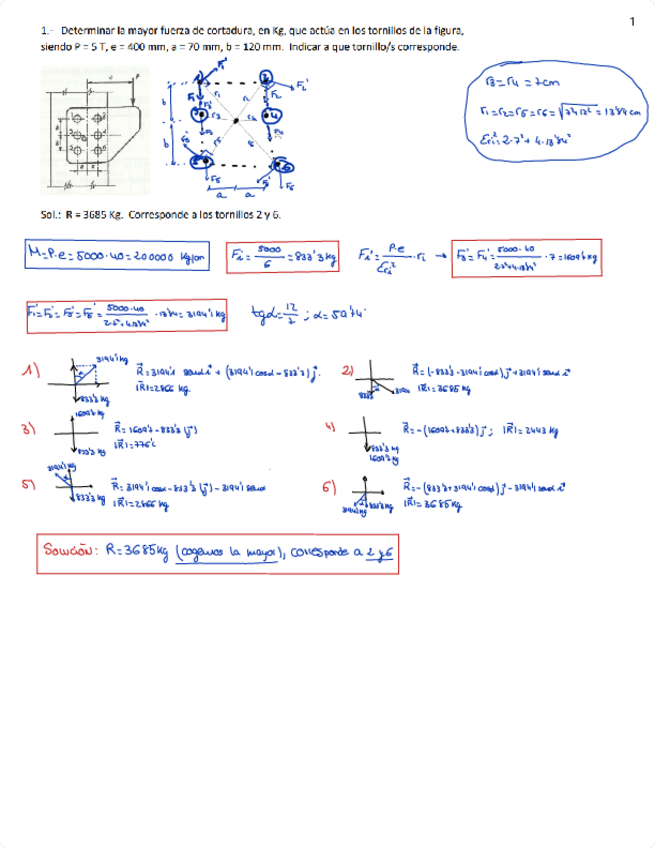 1
1.- Determinar la mayor fuerza de cortadura, en Kg, que actúa en los tornillos de la figura,
siendo P = 5 T, e = 400 mm, a = 70 mm, b = 120 mm. Indicar a que tornillo/s corresponde.
r3 = r4 = 7cm
r1=r2=r5=r6=√(7²+12²) = 13'89 cm
Σri² = 2·7² + 4·13'89²
Sol.: R = 3685 Kg. Corresponde a los tornillos 2 y 6.
M=P·e=5000·40=200000 Kg/cm
Fi = 5000/6 = 833'3 kg
Fi' = P·e/Σri² · ri → F3' = F4' = 5000·40 · 7 = 1609'2 kg
F1'=F2'=F5'=F6' = 5000·40 = 3194'1 kg
tgα = 12/7 ; α = 59'74°
1) 3194'1 kg
833'3 kg
R = 3194'1 senα i + (3194'1 cosα - 833'3) j
|R| = 2866 kg.
2)
|R| = 3685 kg
3) 1609'2 kg
833'3 kg
R = 1609'2 - 833'3 (j)
4) 833'3 kg
1609'2 kg
R = -(1609'2 + 833'3) j ; |R| = 2443 kg
5) 3194'1 kg
833'3 kg
R = 3194'1 cosα - 833'3 (j) - 3194'1 senα
|R| = 2866 kg
6) 3194'1 kg 833'3 kg
R = -(833'3 + 3194'1 cosα) j - 3194'1 senα i
|R| = 3685 kg
Solución: R = 3685 kg (cogemos la mayor), corresponde a 2 y 6